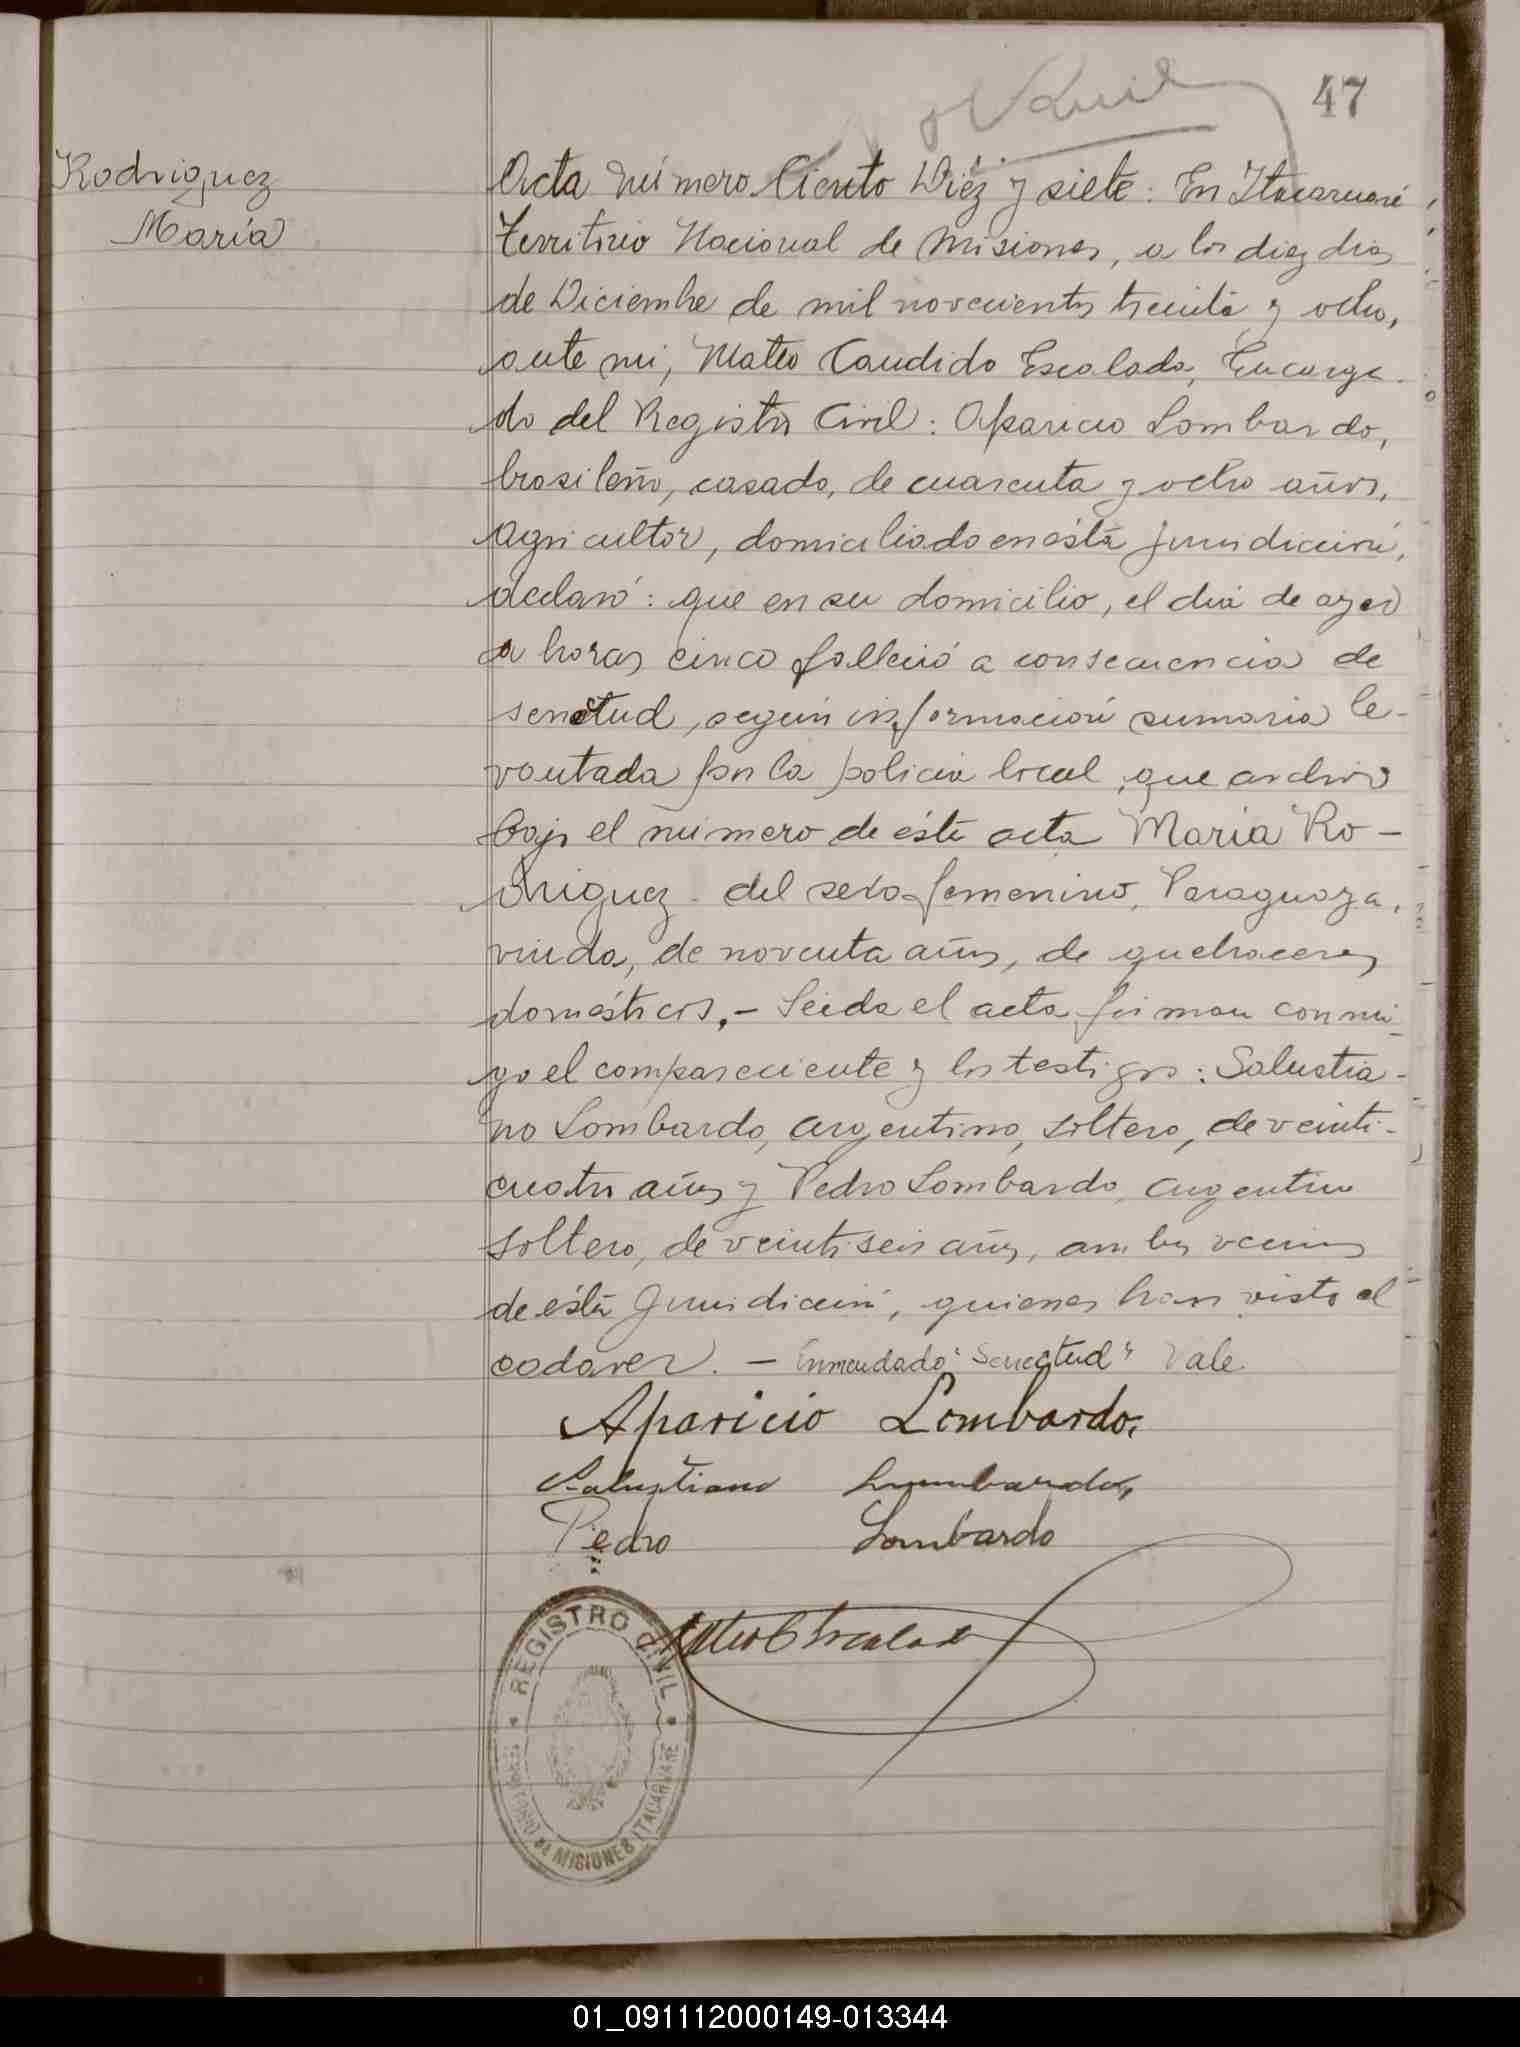 47
Rodriguez
María
Acta número Ciento Diez y siete: En Itacaruaré
Territorio Nacional de Misiones, a los diez dias
de Diciembre de mil novecientos treinta y ocho,
ante mi, Mateo Candido Escalada, Encarga-
do del Registro Civil: Aparicio Lombardo,
brasileño, casado, de cuarenta y ocho años,
Agricultor, domiciliado en ésta Jurisdicción,
declaró: que en su domicilio, el dia de ayer
a horas cinco falleció a consecuencia de
senectud, según información sumaria le-
vantada por la policia local, que archivo
bajo el número de éste acta María Ro-
driguez del sexo femenino, Paraguaya,
viuda, de noventa años, de quehaceres
domésticos.- Leida el acta firman conmi-
go el compareciente y los testigos: Salustia-
no Lombardo, argentino, soltero, de veinti-
cuatro años y Pedro Lombardo, argentino
soltero, de veintiseis años, ambos vecinos
de ésta Jurisdicción, quienes han visto el
cadaver. - Enmendado "Senectud" Vale
Aparicio Lombardo,
Salustiano Lombardo,
Pedro Lombardo
Mateo C Escalada
REGISTRO CIVIL
MISIONES ITACARUARE
01_091112000149-013344